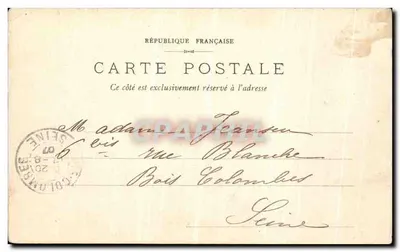 RÉPUBLIQUE FRANÇAISE
CARTE POSTALE
Ce côté est exclusivement réservé à l'adresse
Madame
6 bis rue Blanche
Bois Colombes
Seine
COLOMBES
SEINE
20
07